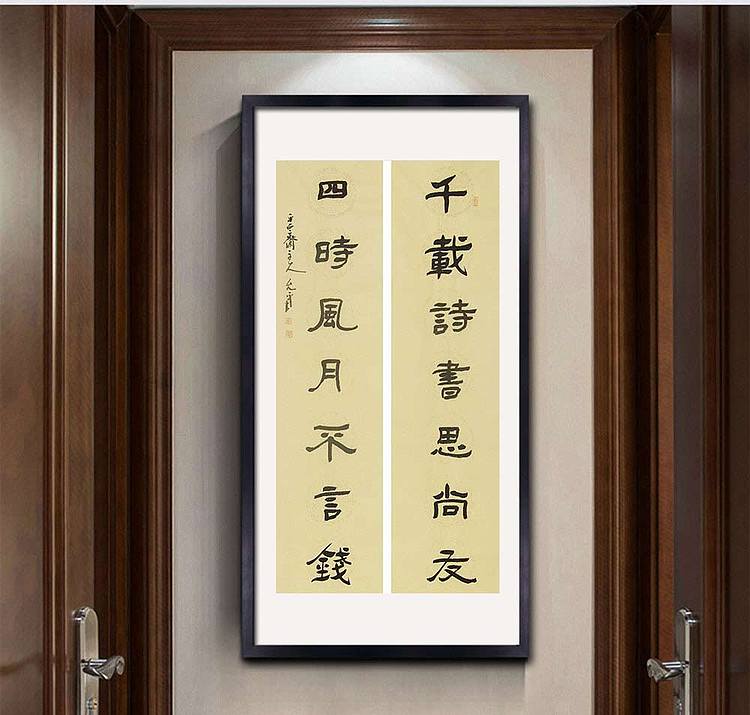 千載詩書思尚友
四時風月不言錢
齋主人